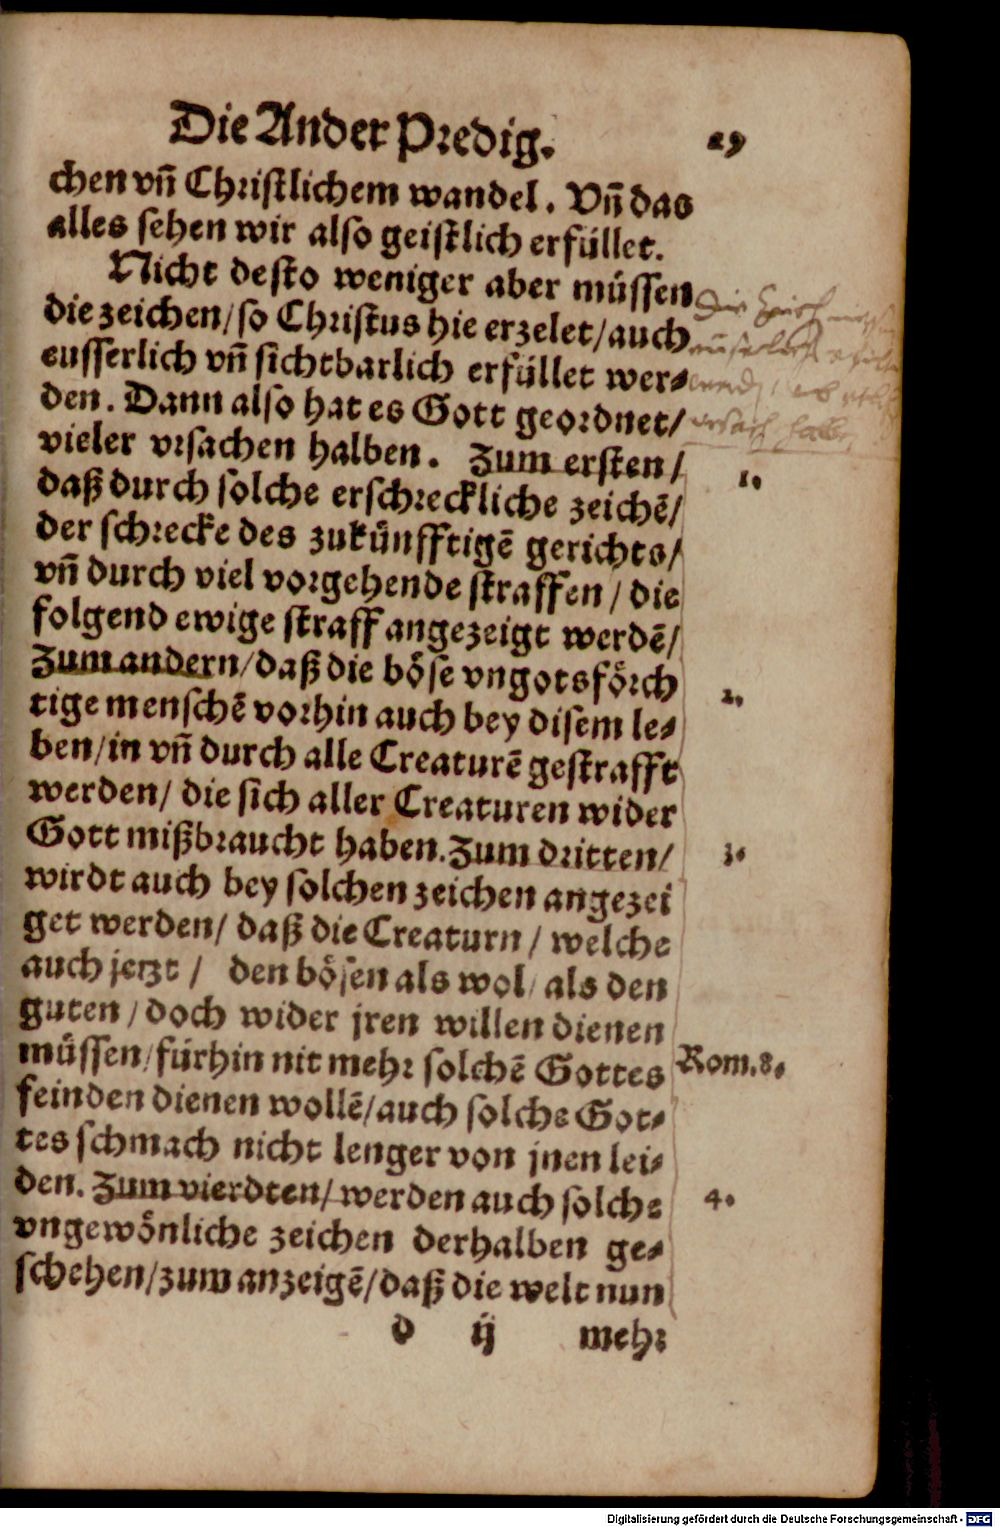 Die Ander Predig. 29
chen vñ Christlichem wandel. Vñ das
alles sehen wir also geistlich erfüllet.
Nicht desto weniger aber müssen
die zeichen/so Christus hie erzelet/auch
eusserlich vñ sichtbarlich erfüllet wer⸗
den. Dann also hat es Gott geordnet/
vieler vrsachen halben. Zum ersten/
1.
daß durch solche erschreckliche zeichē/
der schrecke des zukünfftigē gerichts/
vñ durch viel vorgehende straffen/ die
folgend ewige straff angezeigt werdē/
Zum andern/daß die böse vngotsförch
2.
tige menschē vorhin auch bey disem le⸗
ben/in vñ durch alle Creaturē gestrafft
werden/ die sich aller Creaturen wider
Gott mißbraucht haben. Zum dritten/
3.
wirdt auch bey solchen zeichen angezei
get werden/ daß die Creaturn/ welche
auch jetzt/ den bösen als wol/ als den
guten/doch wider jren willen dienen
müssen/fürhin nit mehr solchē Gottes
Rom.8.
feinden dienen wollē/auch solche Got⸗
tes schmach nicht lenger von jnen lei⸗
den. Zum vierdten/werden auch solche
4.
vngewönliche zeichen derhalben ge⸗
schehen/zum anzeigē/daß die welt nun
d ij mehr
Digitalisierung gefördert durch die Deutsche Forschungsgemeinschaft - DFG